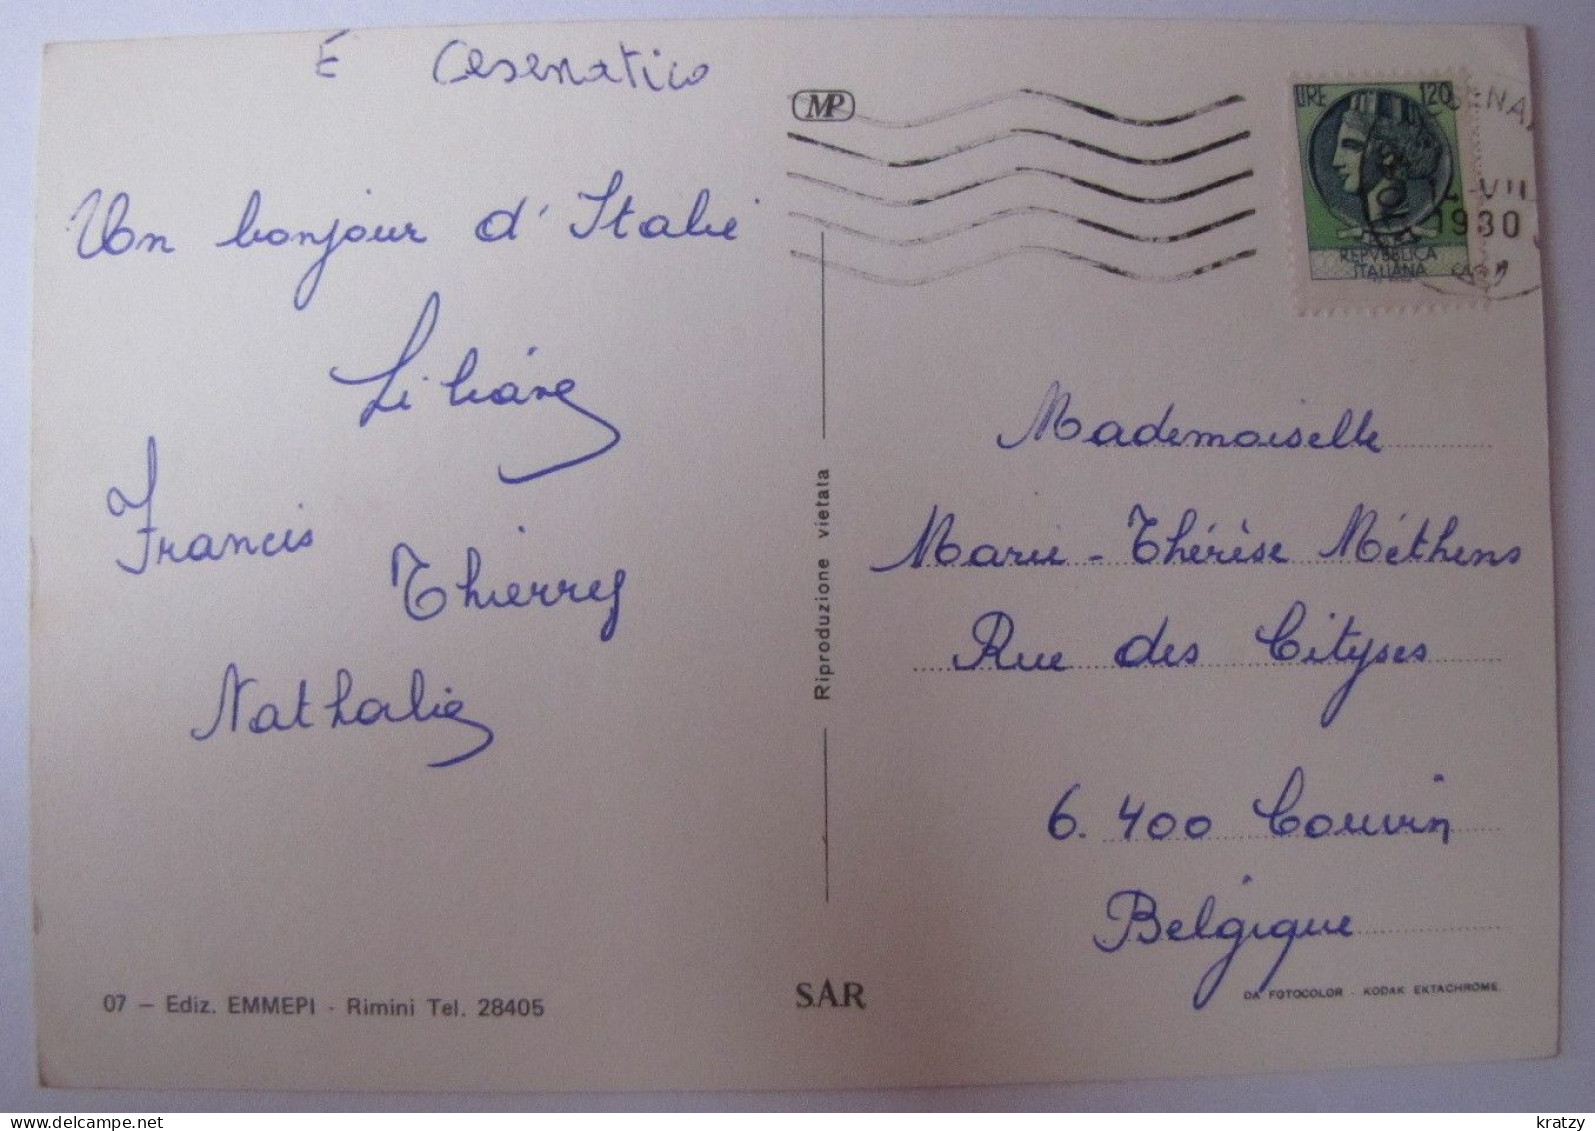 È Cesenatico
Un bonjour d'Italie
Liliane
Francis
Thierry
Nathalie
07 — Ediz. EMMEPI - Rimini Tel. 28405
MP
Riproduzione vietata
SAR
LIRE 120
REPVBBLICA
ITALIANA
14-VII
1980
Mademoiselle
Marie-Thérèse Méthens
Rue des Cityses
6.400 Couvin
Belgique
DA FOTOCOLOR - KODAK EKTACHROME
kratzy